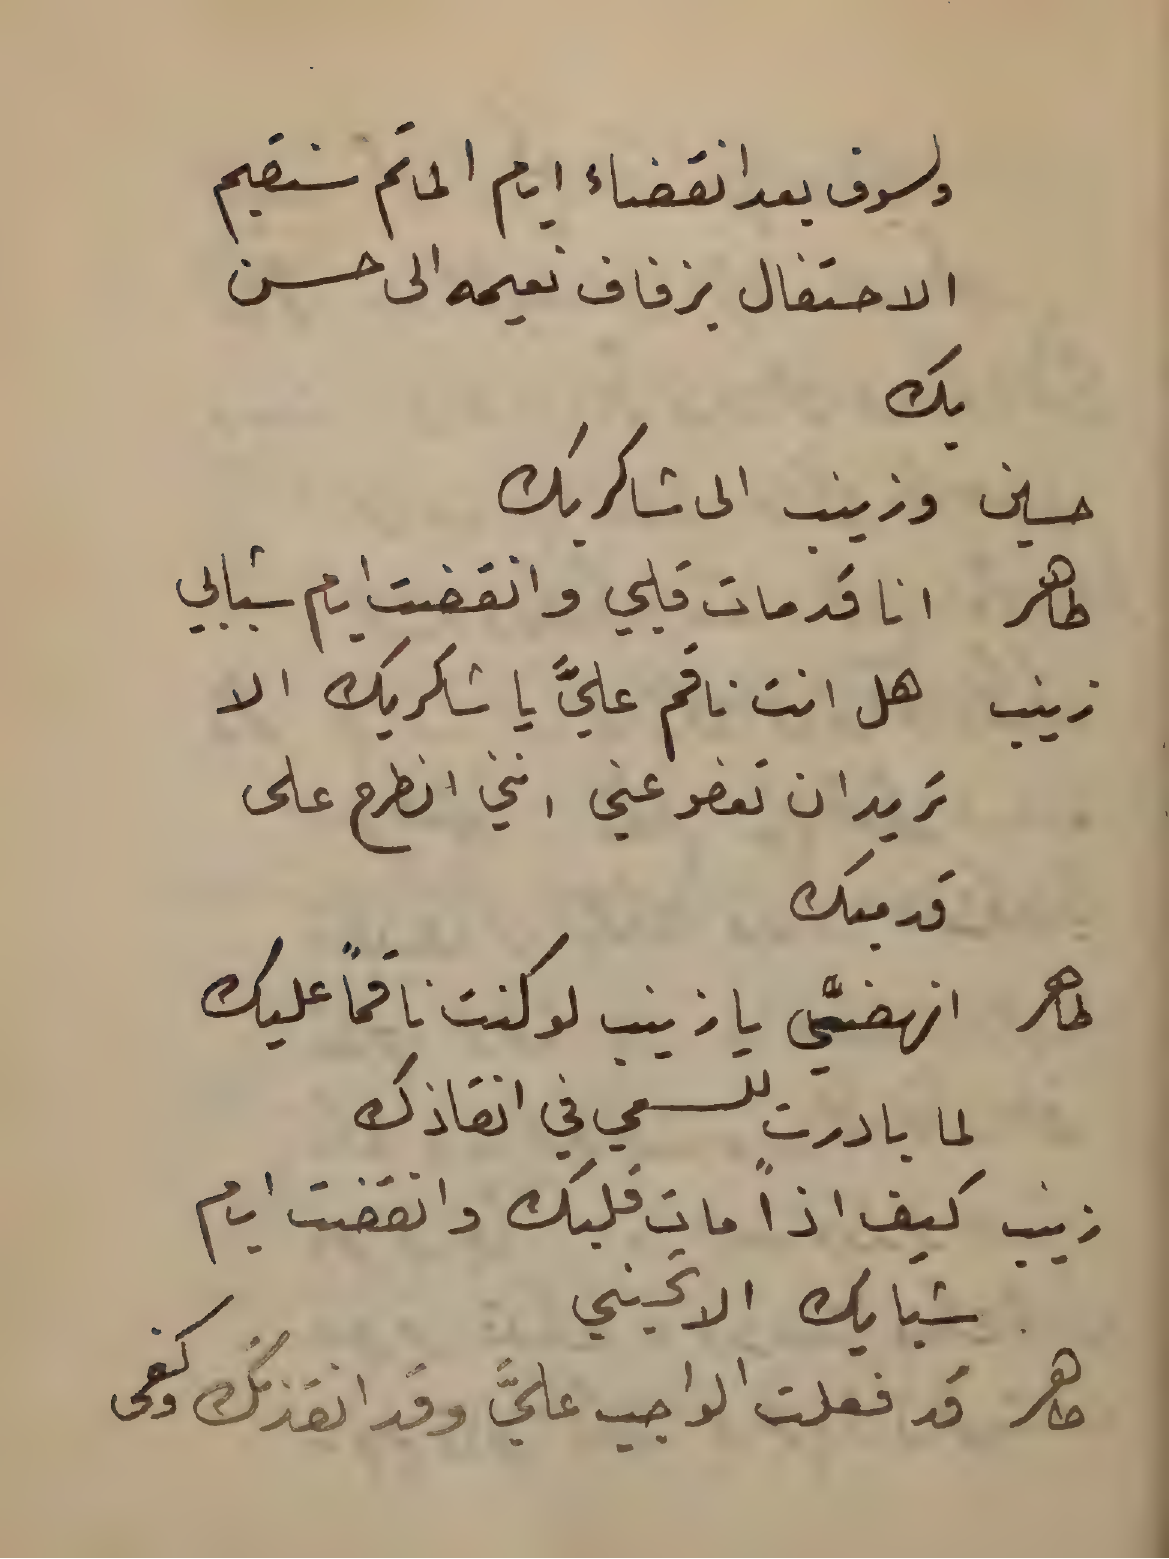 ولسوف بعد انقضاء ايام المآتم سنقيم
الاحتفال بزفاف نعيمه الى حسن
بك
حسين وزينب الى شاكر بك
طاهر انا قد مات قلبي وانقضت ايام شبابي
زينب هل انت ناقم عليَّ يا شاكر بك الا
تريد ان تعفو عني انني انطرح على
قدميك
طاهر انهضي يا زينب لو كنت ناقماً عليك
لما بادرت للسعي في انقاذك
زينب كيف اذاً مات قلبك وانقضت ايام
شبابك الا تحبني
طاهر قد فعلت الواجب عليَّ وقد انقذتك وكفى